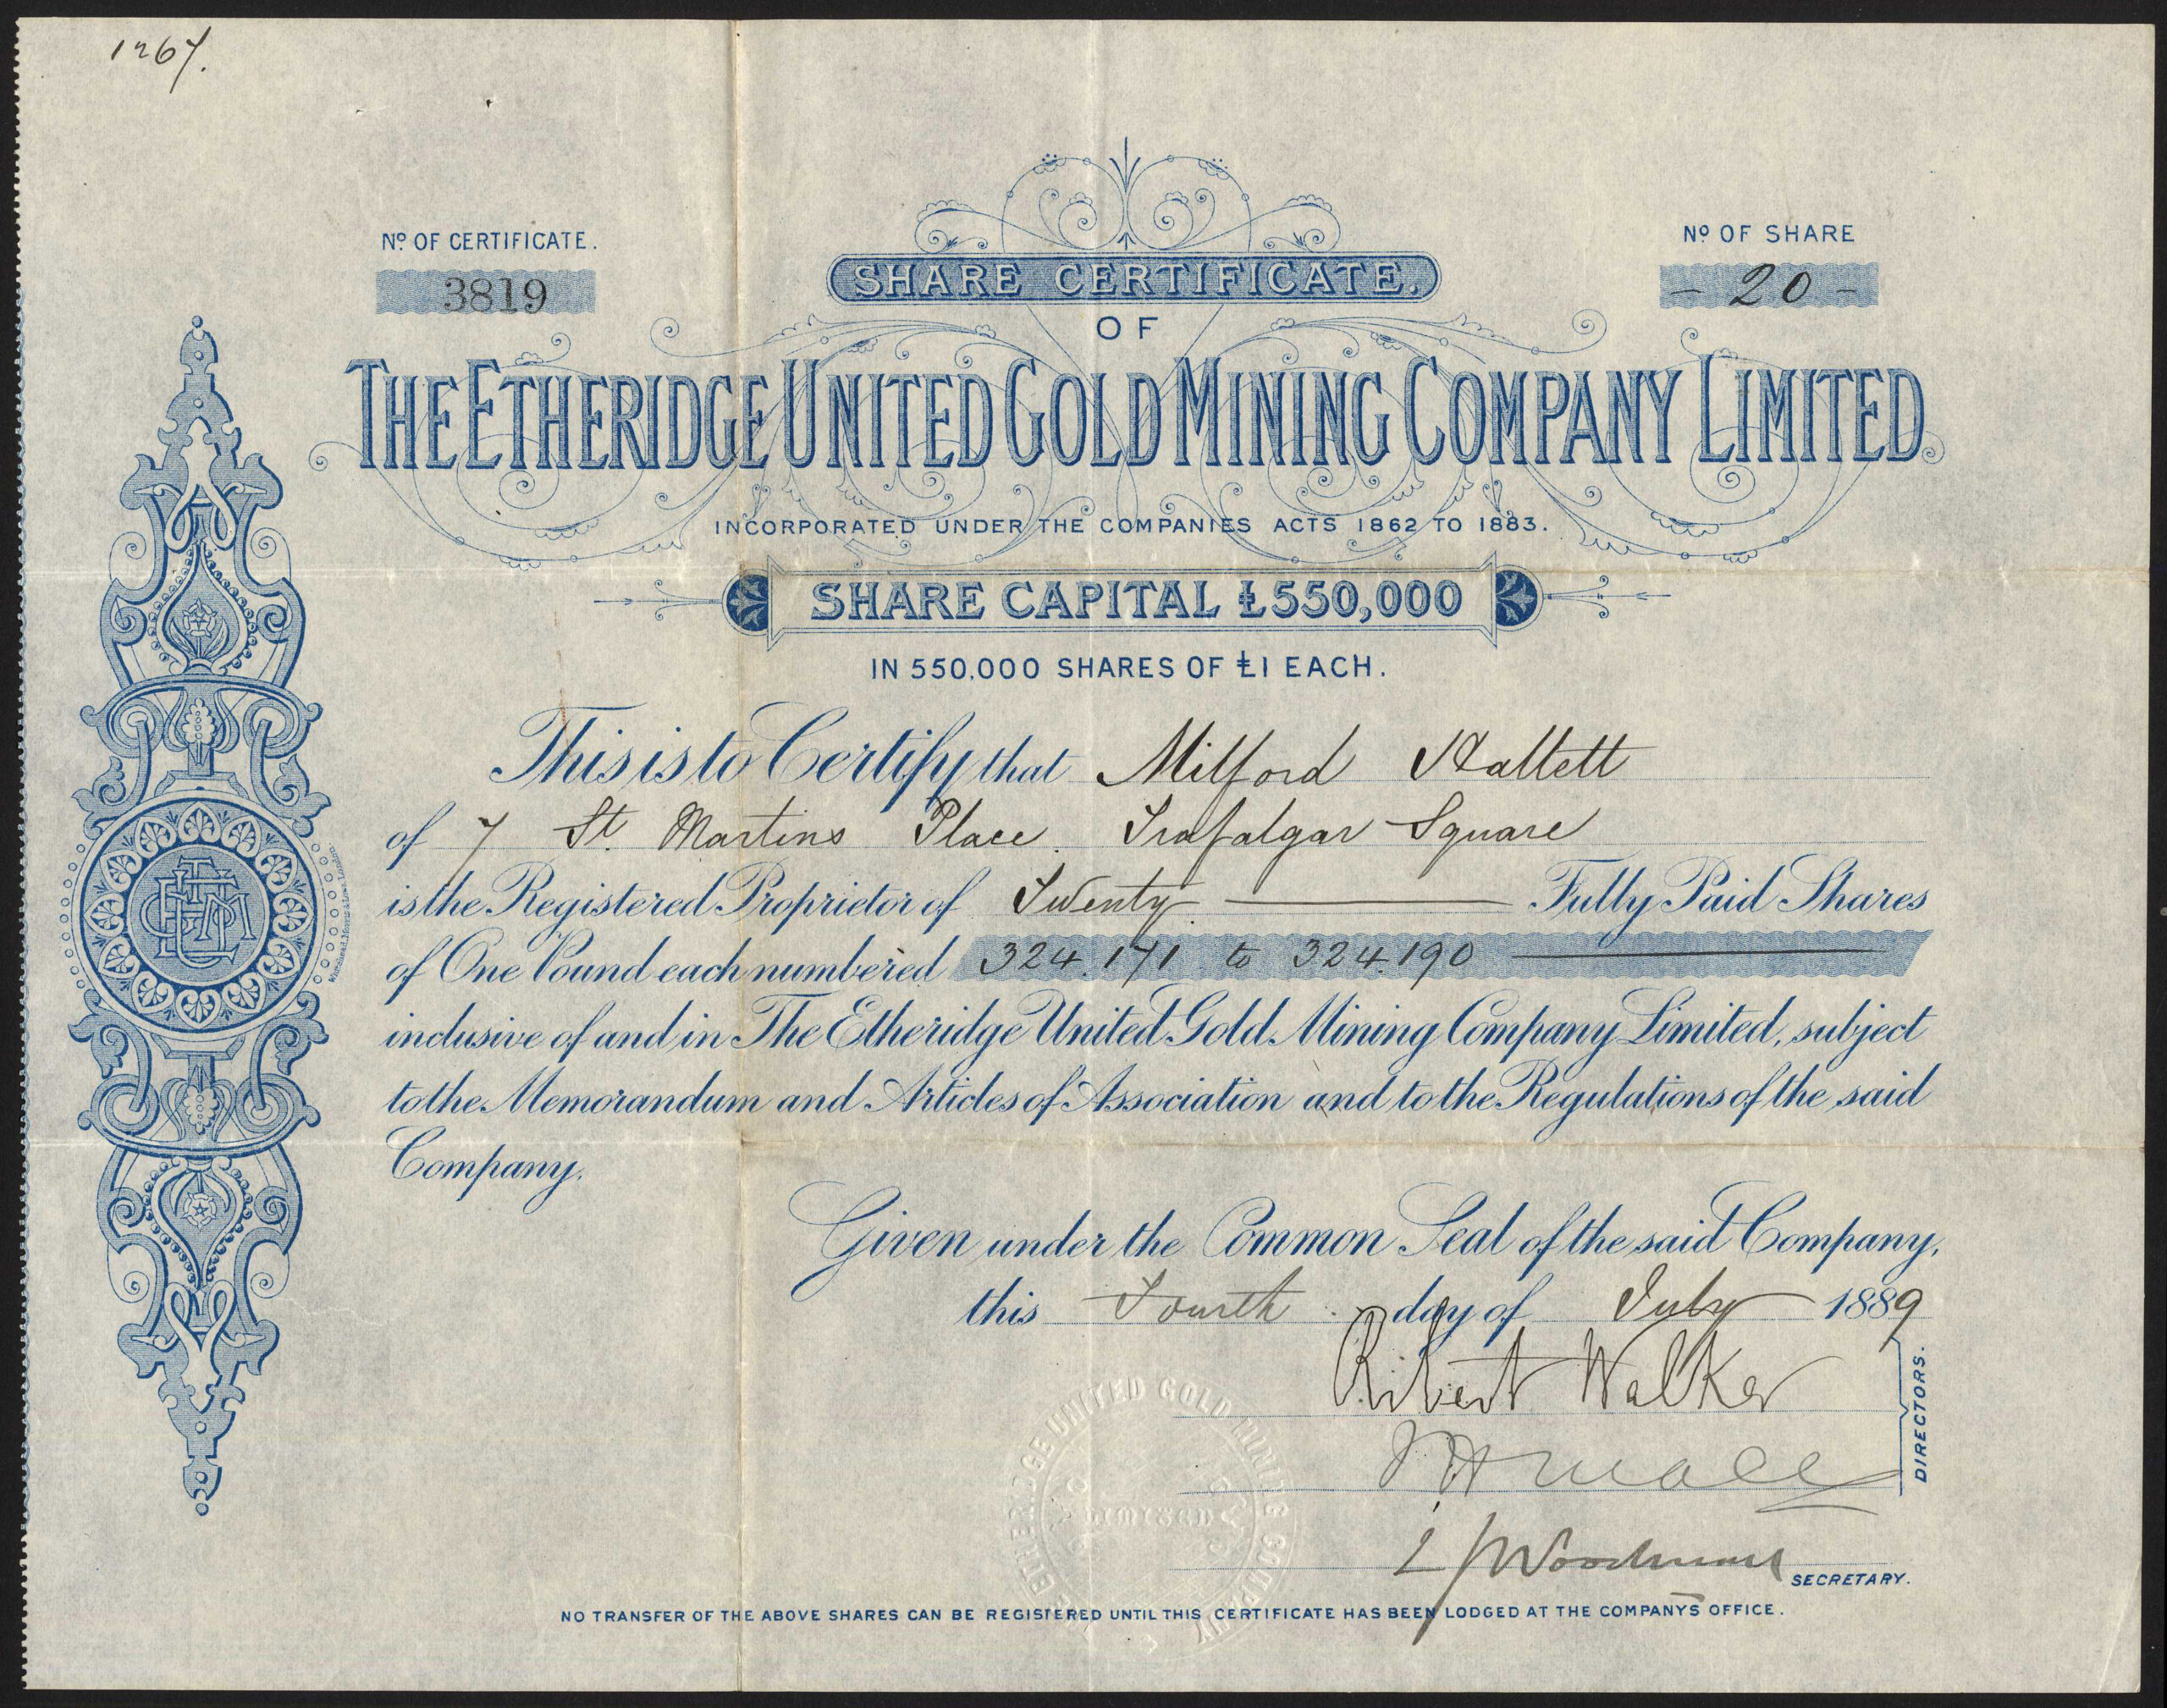 1267.
Nº OF CERTIFICATE.
3819
Nº OF SHARE
- 20 -
SHARE CERTIFICATE.
OF
THE ETHERIDGE UNITED GOLD MINING COMPANY LIMITED.
INCORPORATED UNDER THE COMPANIES ACTS 1862 TO 1883.
SHARE CAPITAL £550,000
IN 550,000 SHARES OF £1 EACH.
This is to Certify that Milford Hallett
of 7 St. Martins Place. Trafalgar Square
is the Registered Proprietor of Twenty Fully Paid Shares
of One Pound each numbered 324.171 to 324.190
inclusive of and in The Etheridge United Gold Mining Company Limited, subject
to the Memorandum and Articles of Association and to the Regulations of the said
Company.
Given under the Common Seal of the said Company,
this Fourth day of July 1889
Robert Walker
DIRECTORS.
SECRETARY.
ETHERIDGE UNITED GOLD MINING COMPANY
LIMITED
NO TRANSFER OF THE ABOVE SHARES CAN BE REGISTERED UNTIL THIS CERTIFICATE HAS BEEN LODGED AT THE COMPANYS OFFICE.